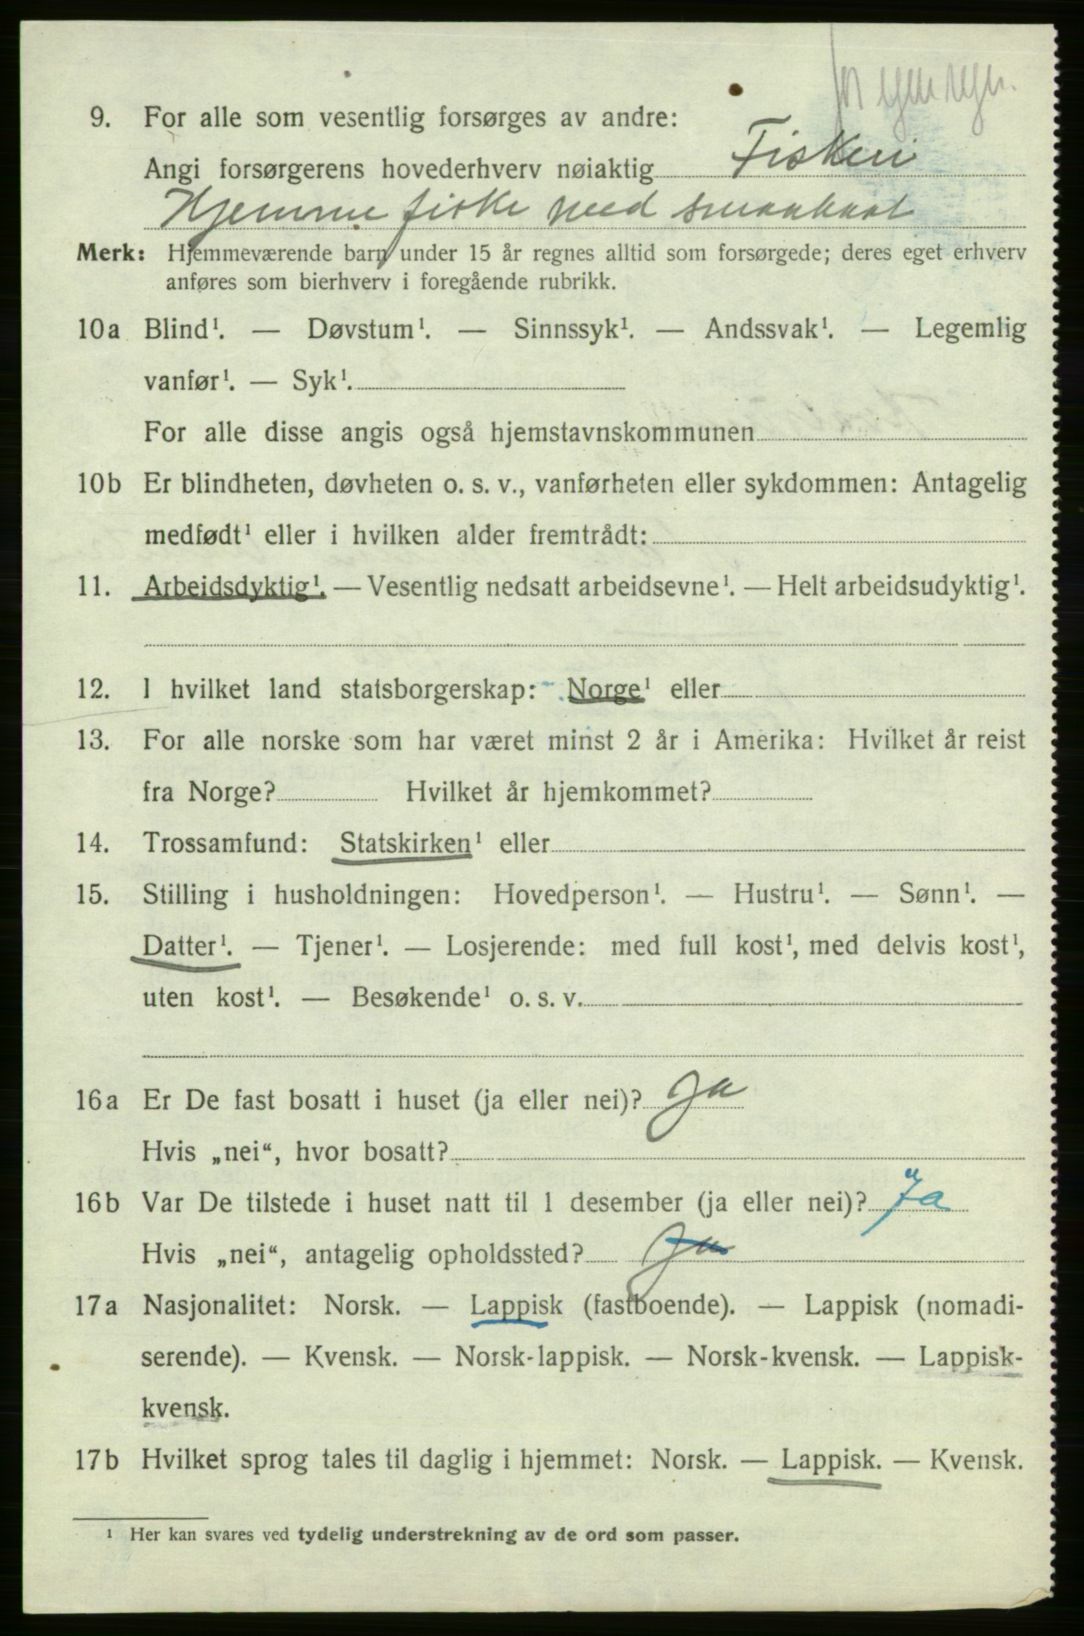 9. For alle som vesentlig forsørges av andre:
Angi forsørgerens hovederhverv nøiaktig Fiskeri
Hjemme fiske med smaabaat
Merk: Hjemmeværende barn under 15 år regnes alltid som forsørgede; deres eget erhverv
anføres som bierhverv i foregående rubrikk.
10a Blind¹. — Døvstum¹. — Sinnssyk¹. — Andssvak¹. — Legemlig
vanfør¹. — Syk¹.
For alle disse angis også hjemstavnskommunen
10b Er blindheten, døvheten o. s. v., vanførheten eller sykdommen: Antagelig
medfødt¹ eller i hvilken alder fremtrådt:
11. Arbeidsdyktig¹. — Vesentlig nedsatt arbeidsevne¹. — Helt arbeidsudyktig¹.
12. I hvilket land statsborgerskap: Norge¹ eller
13. For alle norske som har været minst 2 år i Amerika: Hvilket år reist
fra Norge? Hvilket år hjemkommet?
14. Trossamfund: Statskirken¹ eller
15. Stilling i husholdningen: Hovedperson¹. — Hustru¹. — Sønn¹. —
Datter¹. — Tjener¹. — Losjerende: med full kost¹, med delvis kost¹,
uten kost¹. — Besøkende¹ o. s. v.
16a Er De fast bosatt i huset (ja eller nei)? Ja
Hvis „nei“, hvor bosatt?
16b Var De tilstede i huset natt til 1 desember (ja eller nei)? Ja
Hvis „nei“, antagelig opholdssted? Ja
17a Nasjonalitet: Norsk. — Lappisk (fastboende). — Lappisk (nomadi-
serende). — Kvensk. — Norsk-lappisk. — Norsk-kvensk. — Lappisk-
kvensk.
17b Hvilket sprog tales til daglig i hjemmet: Norsk. — Lappisk. — Kvensk.
¹ Her kan svares ved tydelig understrekning av de ord som passer.